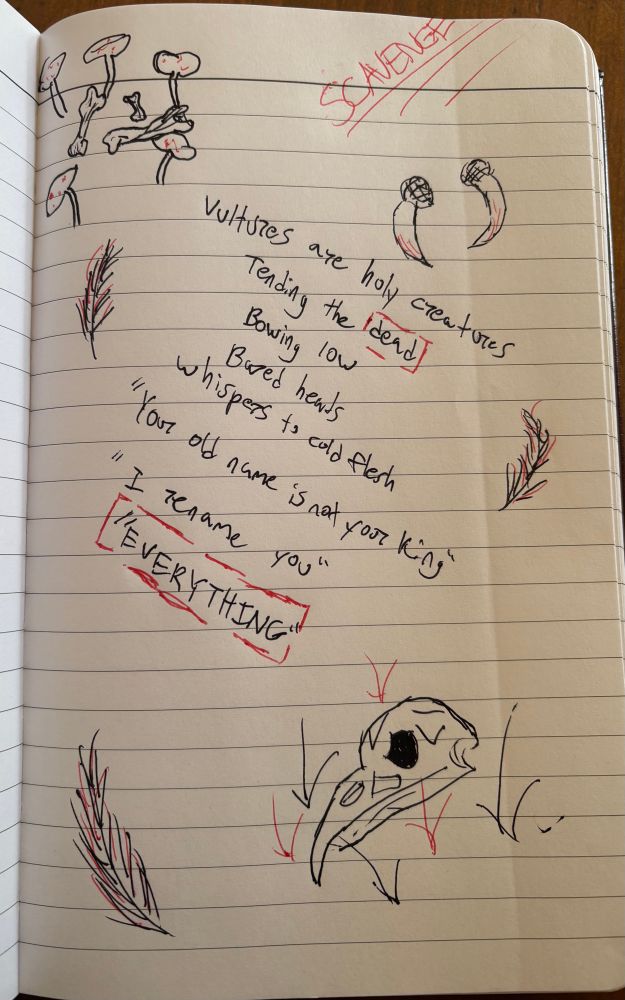 SCAVENGE
Vultures are holy creatures
Tending the dead
Bowing low
Bared heads
whispers to cold flesh
"Your old name is not your king"
"I rename you"
"EVERYTHING"